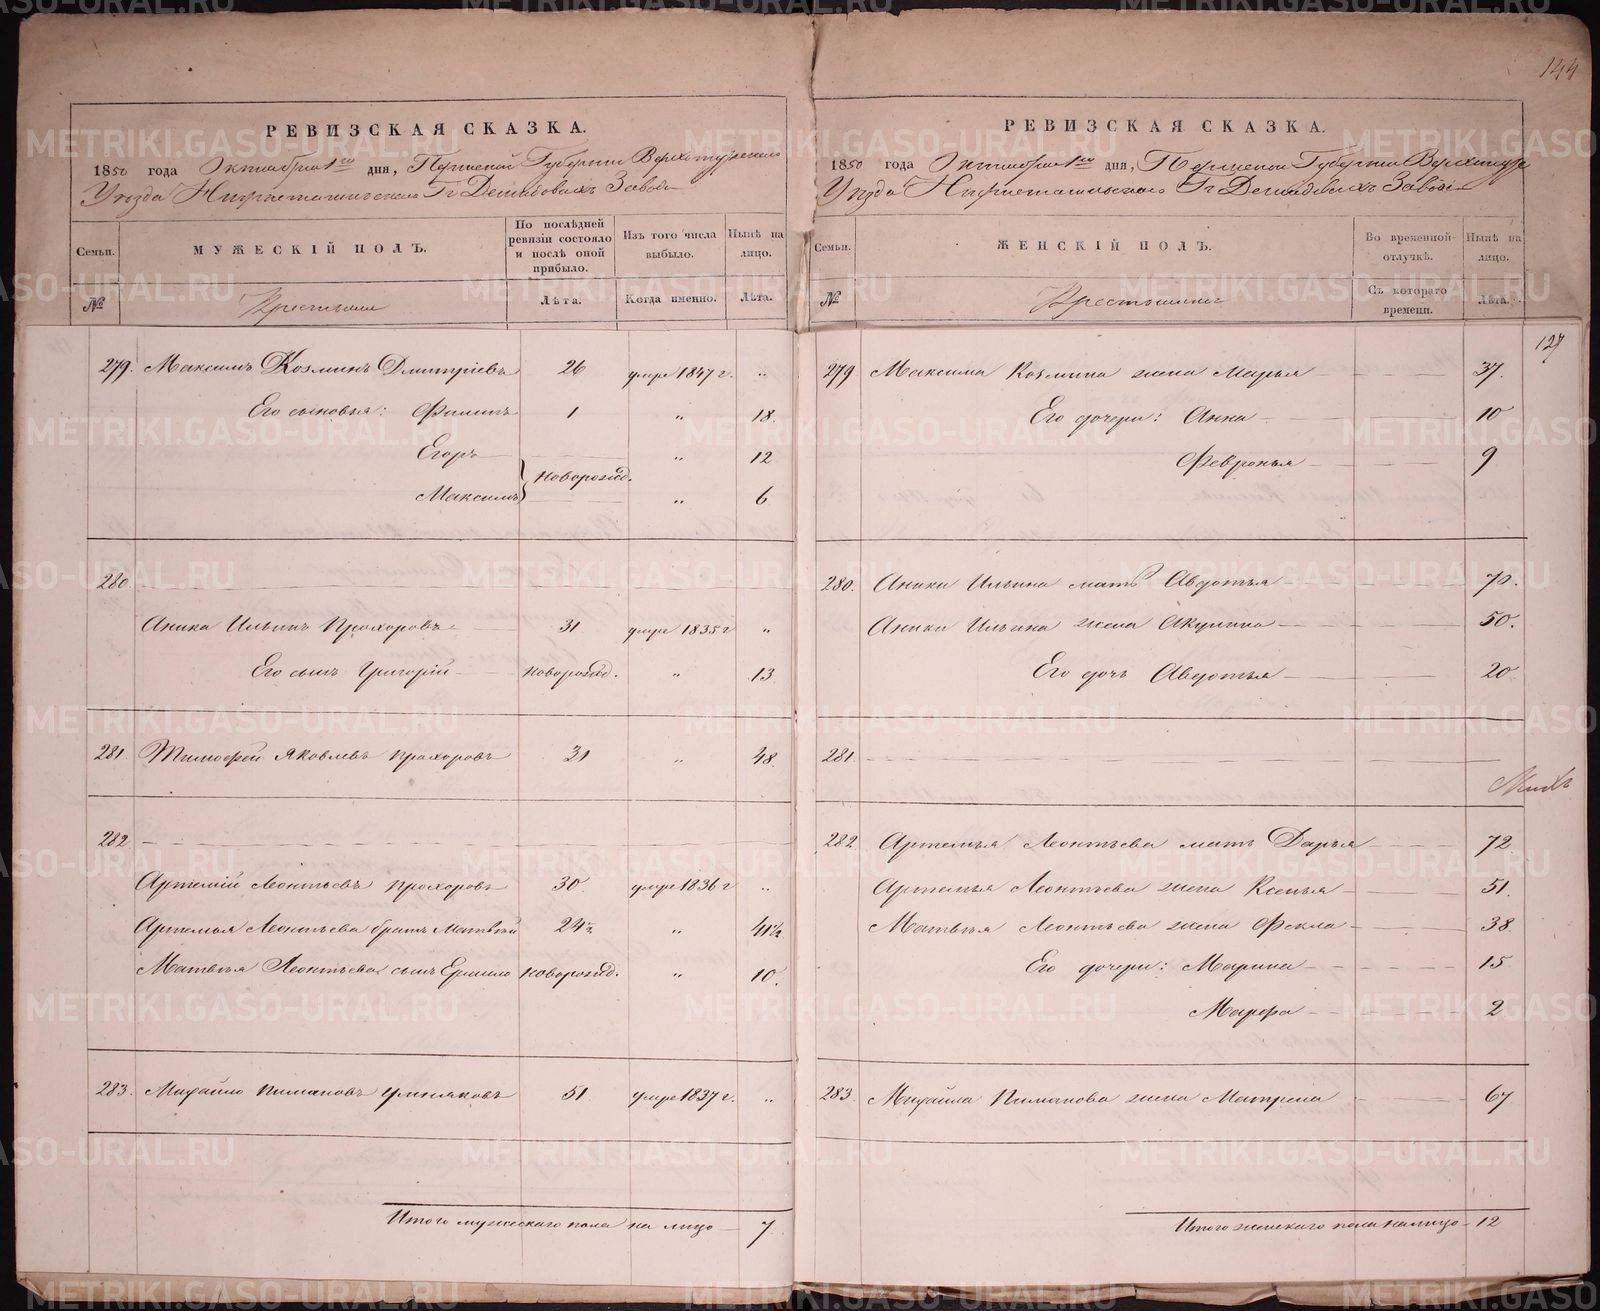 144
РЕВИЗСКАЯ СКАЗКА.
1850 года Октября 1го дня, Пермской Губернии Верхотурскаго
Уѣзда Нижнетагильскаго Гг Демидовыхъ Завода
Семьи.
МУЖЕСКІЙ ПОЛЪ.
По послѣдней ревизіи состояло и послѣ оной прибыло.
Изъ того числа выбыло.
Нынѣ на лицо.
№
Крестьяне
Лѣта.
Когда именно.
Лѣта.
279. Максимъ Козминъ Дмитріевъ 26 умре 1847 г. „
Его сыновья: Филипъ 1 „ 18.
Егоръ „ 12
Новорожд.
Максимъ „ 6
280.
Аника Ильинъ Прохоровъ 31 умре 1835 г „
Его сынъ Григорій Новорожд. „ 13
281. Тимофей Яковлевъ Прохоровъ 31 „ 48.
282.
Артемій Леонтьевъ Прохоровъ 30. умре 1836 г „
Артемья Леонтьева братъ Матвѣй 24½ „ 41½
Матвѣя Леонтьева сынъ Ермило Новорожд. „ 10.
283. Михайло Пимановъ Умняковъ 51. умре 1837 г. „
Итого мужескаго пола на лицо 7
РЕВИЗСКАЯ СКАЗКА.
1850 года Октября 1го дня, Пермской Губерніи Верхотур
Уѣзда Нижнетагильскаго Гг Демидовыхъ Завод
Семьи.
ЖЕНСКІЙ ПОЛЪ.
Во временной отлучкѣ.
Нынѣ на лицо.
№
Крестьянки
Съ котораго времени.
Лѣта.
127
279 Максима Козмина жена Марья 37.
Его дочери: Анна 10
Февронья 9
280. Аники Ильина мать Авдотья 70.
Аники Ильина жена Акулина 50.
Его дочь Авдотья 20
281.
282 Артемья Леонтьева мать Дарья 72
Артемья Леонтьева жена Ксенья 51.
Матвѣя Леонтьева жена Фекла 38.
Его дочери: Марина 15
Марфа 2
283. Михайла Пиманова жена Матрена 67
Итого женскаго пола на лицо 12
METRIKI.GASO-URAL.RU